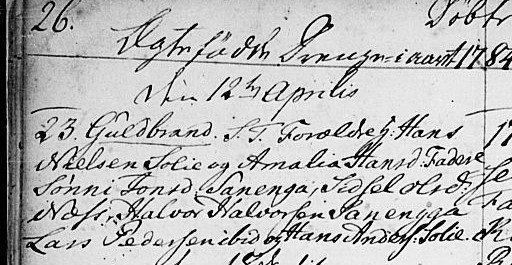 26. Døbte
Ægtefødde Drenge i aaret 1784
Den 12te Aprilis
23. Guldbrand. S. T. Forældre Hans
Nielsen Solie og Amalia Hansd. Fadere
Sønni Jonsd. Sanenga, Sidsel Olsd:
Næss, Halvor Halvorsen Sanengga
Lars Pedersen ibid og Hans Anders: Solie.